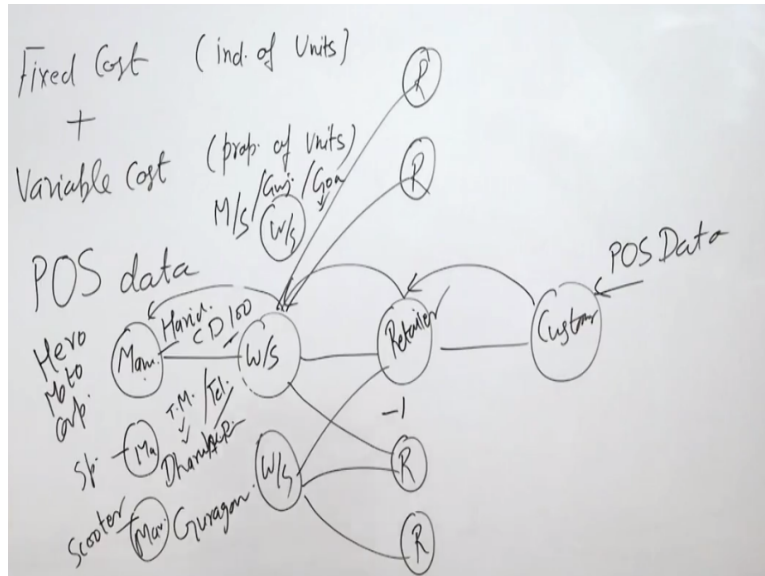 Fixed Cost (ind. of Units)
+
Variable Cost (prop. of Units)
M/S /Guj. /Goa
W/S
R
R
POS data
POS Data
Hero
Moto
Corp.
Man.
Harid.
CD100
W/S
Retailer
Custmr
Sp.
Ma
T.M. /Tel.
Dharu
-1
R
Scooter
Mar.
Guragon.
W/S
R